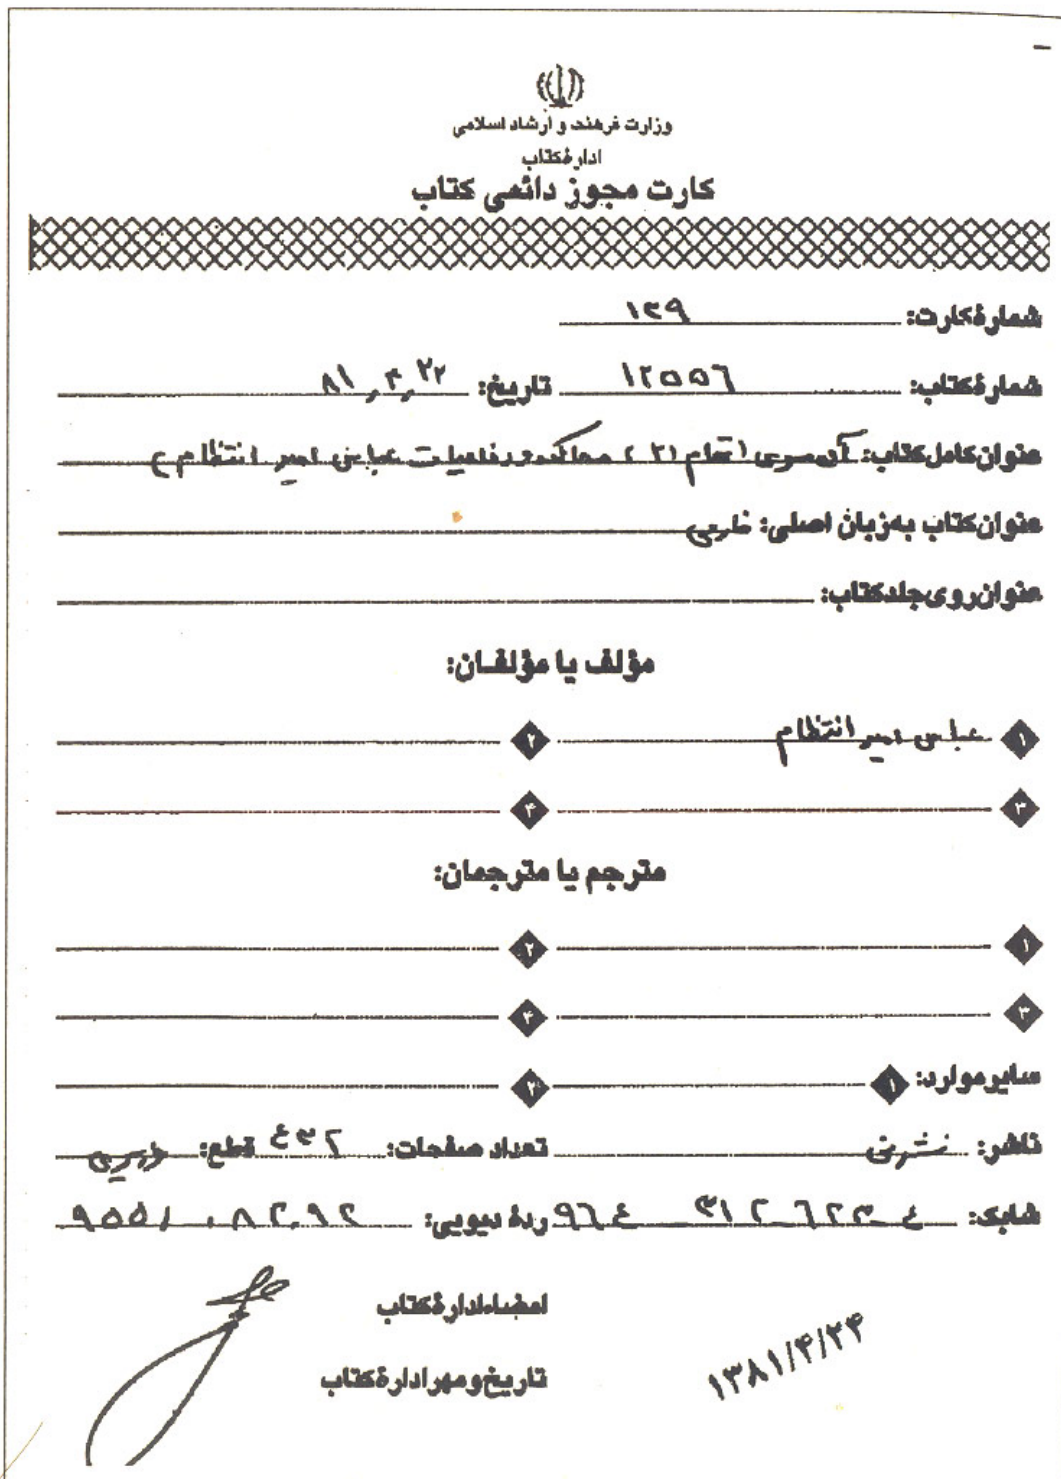 وزارت فرهنگ و ارشاد اسلامی
ادارهٔ کتاب
کارت مجوز دائمی کتاب
شمارهٔ کارت: ۱۳۹
شمارهٔ کتاب: ۱۲۵۵۶ تاریخ: ۸۱٫۴٫۲۲
عنوان کامل کتاب: آن سوی اتهام (۲) محاکمه و دفاعیات عباس امیر انتظام)
عنوان کتاب به زبان اصلی: فارسی
عنوان روی جلد کتاب:
مؤلف یا مؤلفان:
۱ عباس امیر انتظام ۲
۳ ۴
مترجم یا مترجمان:
۱ ۲
۳ ۴
سایر موارد: ۱ ۲
ناشر: نشر نی تعداد صفحات: ۴۳۲ قطع:
شابک: ۹۶۴ ۳۱۲ ۶۲۳ ۴ ردهٔ دیویی: ۹۵۵/۰۸۴۰۹۲
امضاء ادارهٔ کتاب
تاریخ و مهر ادارهٔ کتاب
۱۳۸۱/۴/۲۴